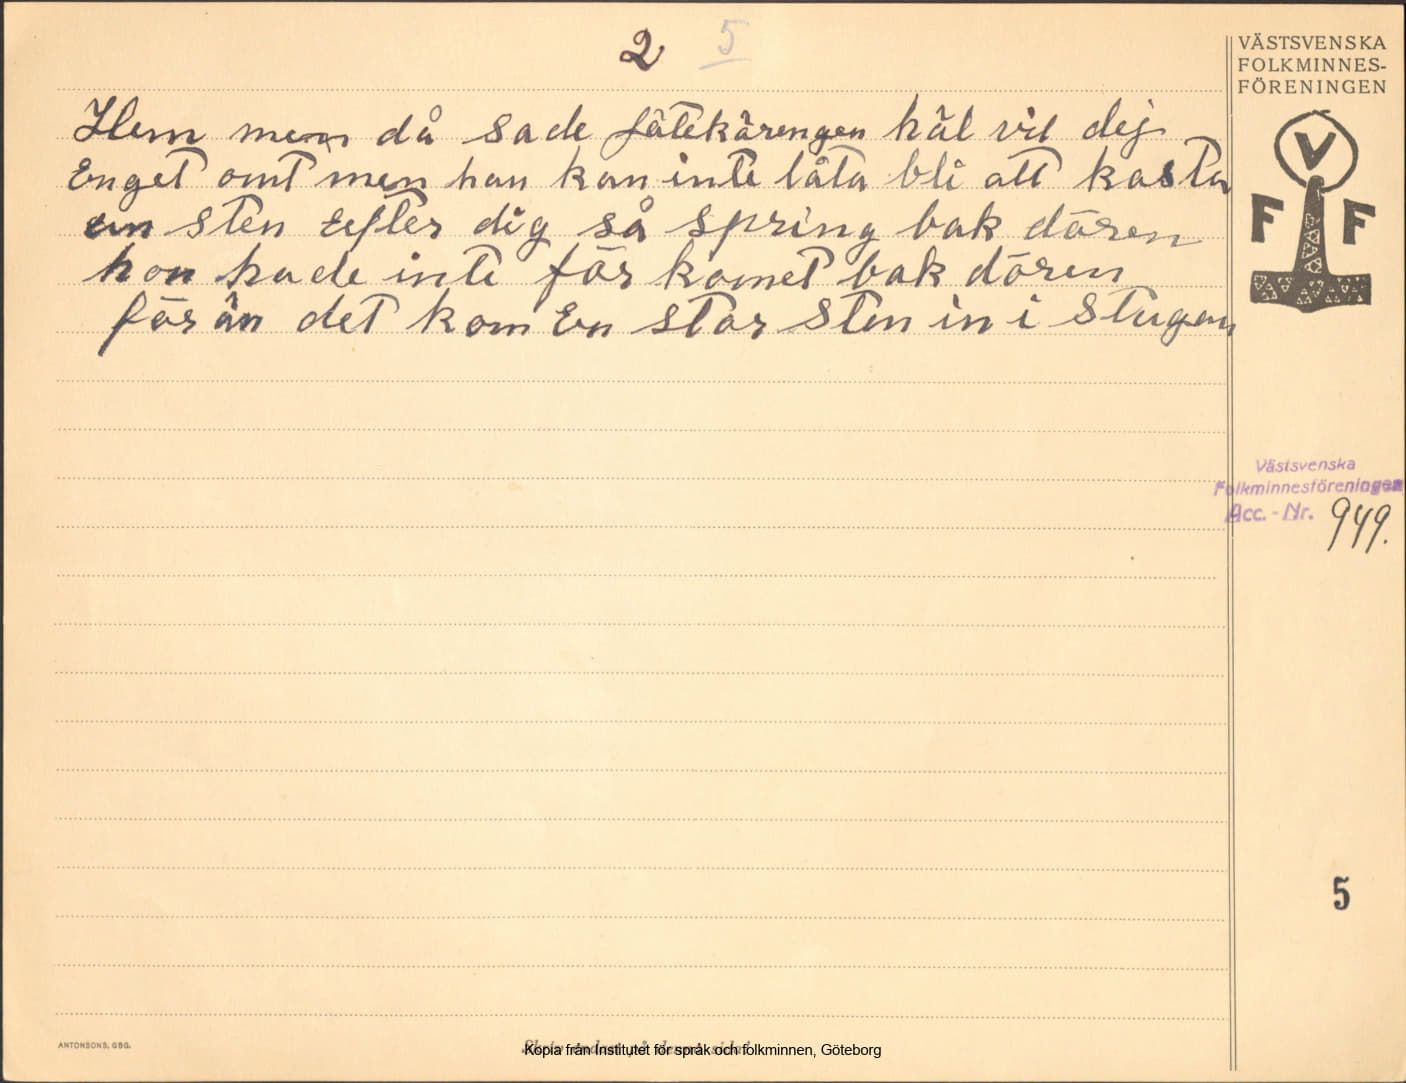 2 5
VÄSTSVENSKA
FOLKMINNES-
FÖRENINGEN
V
F F
Hem men då sade jätekärengen häl vid dej
Enget omt men han kan inte låta bli att kasta
en sten eefter dig så spring bak dören
hon hade inte för komet bak dören
för än det kom En stor sten in i stugan
Västsvenska
Folkminnesföreningen
Acc.-Nr. 949.
5
ANTONSONS, GBG.
Skriv endast på denna sida!
Kopia från Institutet för språk och folkminnen, Göteborg